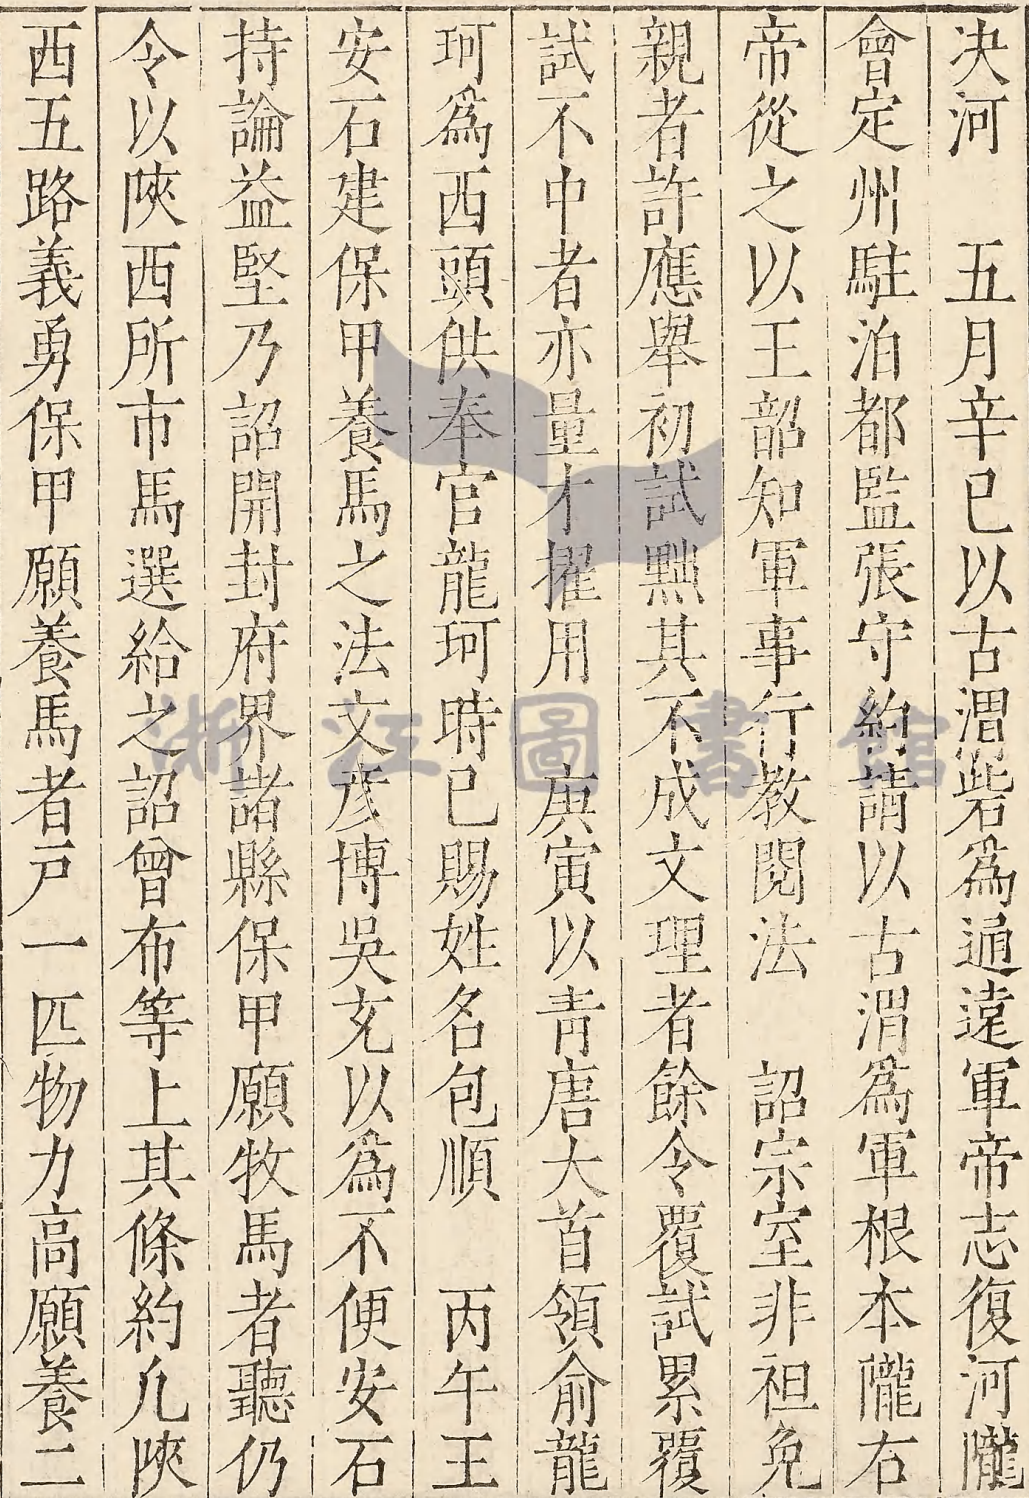 决河　五月辛巳以古渭砦爲通遠軍帝志復河隴
會定州駐泊都監張守約請以古渭爲軍根本隴右
帝從之以王韶知軍事行教閱法　詔宗室非袒免
親者許應舉初試黜其不成文理者餘令覆試累覆
試不中者亦量才擢用　庚寅以靑唐大首領俞龍
珂爲西頭供奉官龍珂時已賜姓名包順　丙午王
安石建保甲養馬之法文彥博吳充以爲不便安石
持論益堅乃詔開封府界諸縣保甲願牧馬者聽仍
令以陝西所市馬選給之詔曾布等上其條約凡陝
西五路義勇保甲願養馬者戸一匹物力高願養二
浙江圖書館